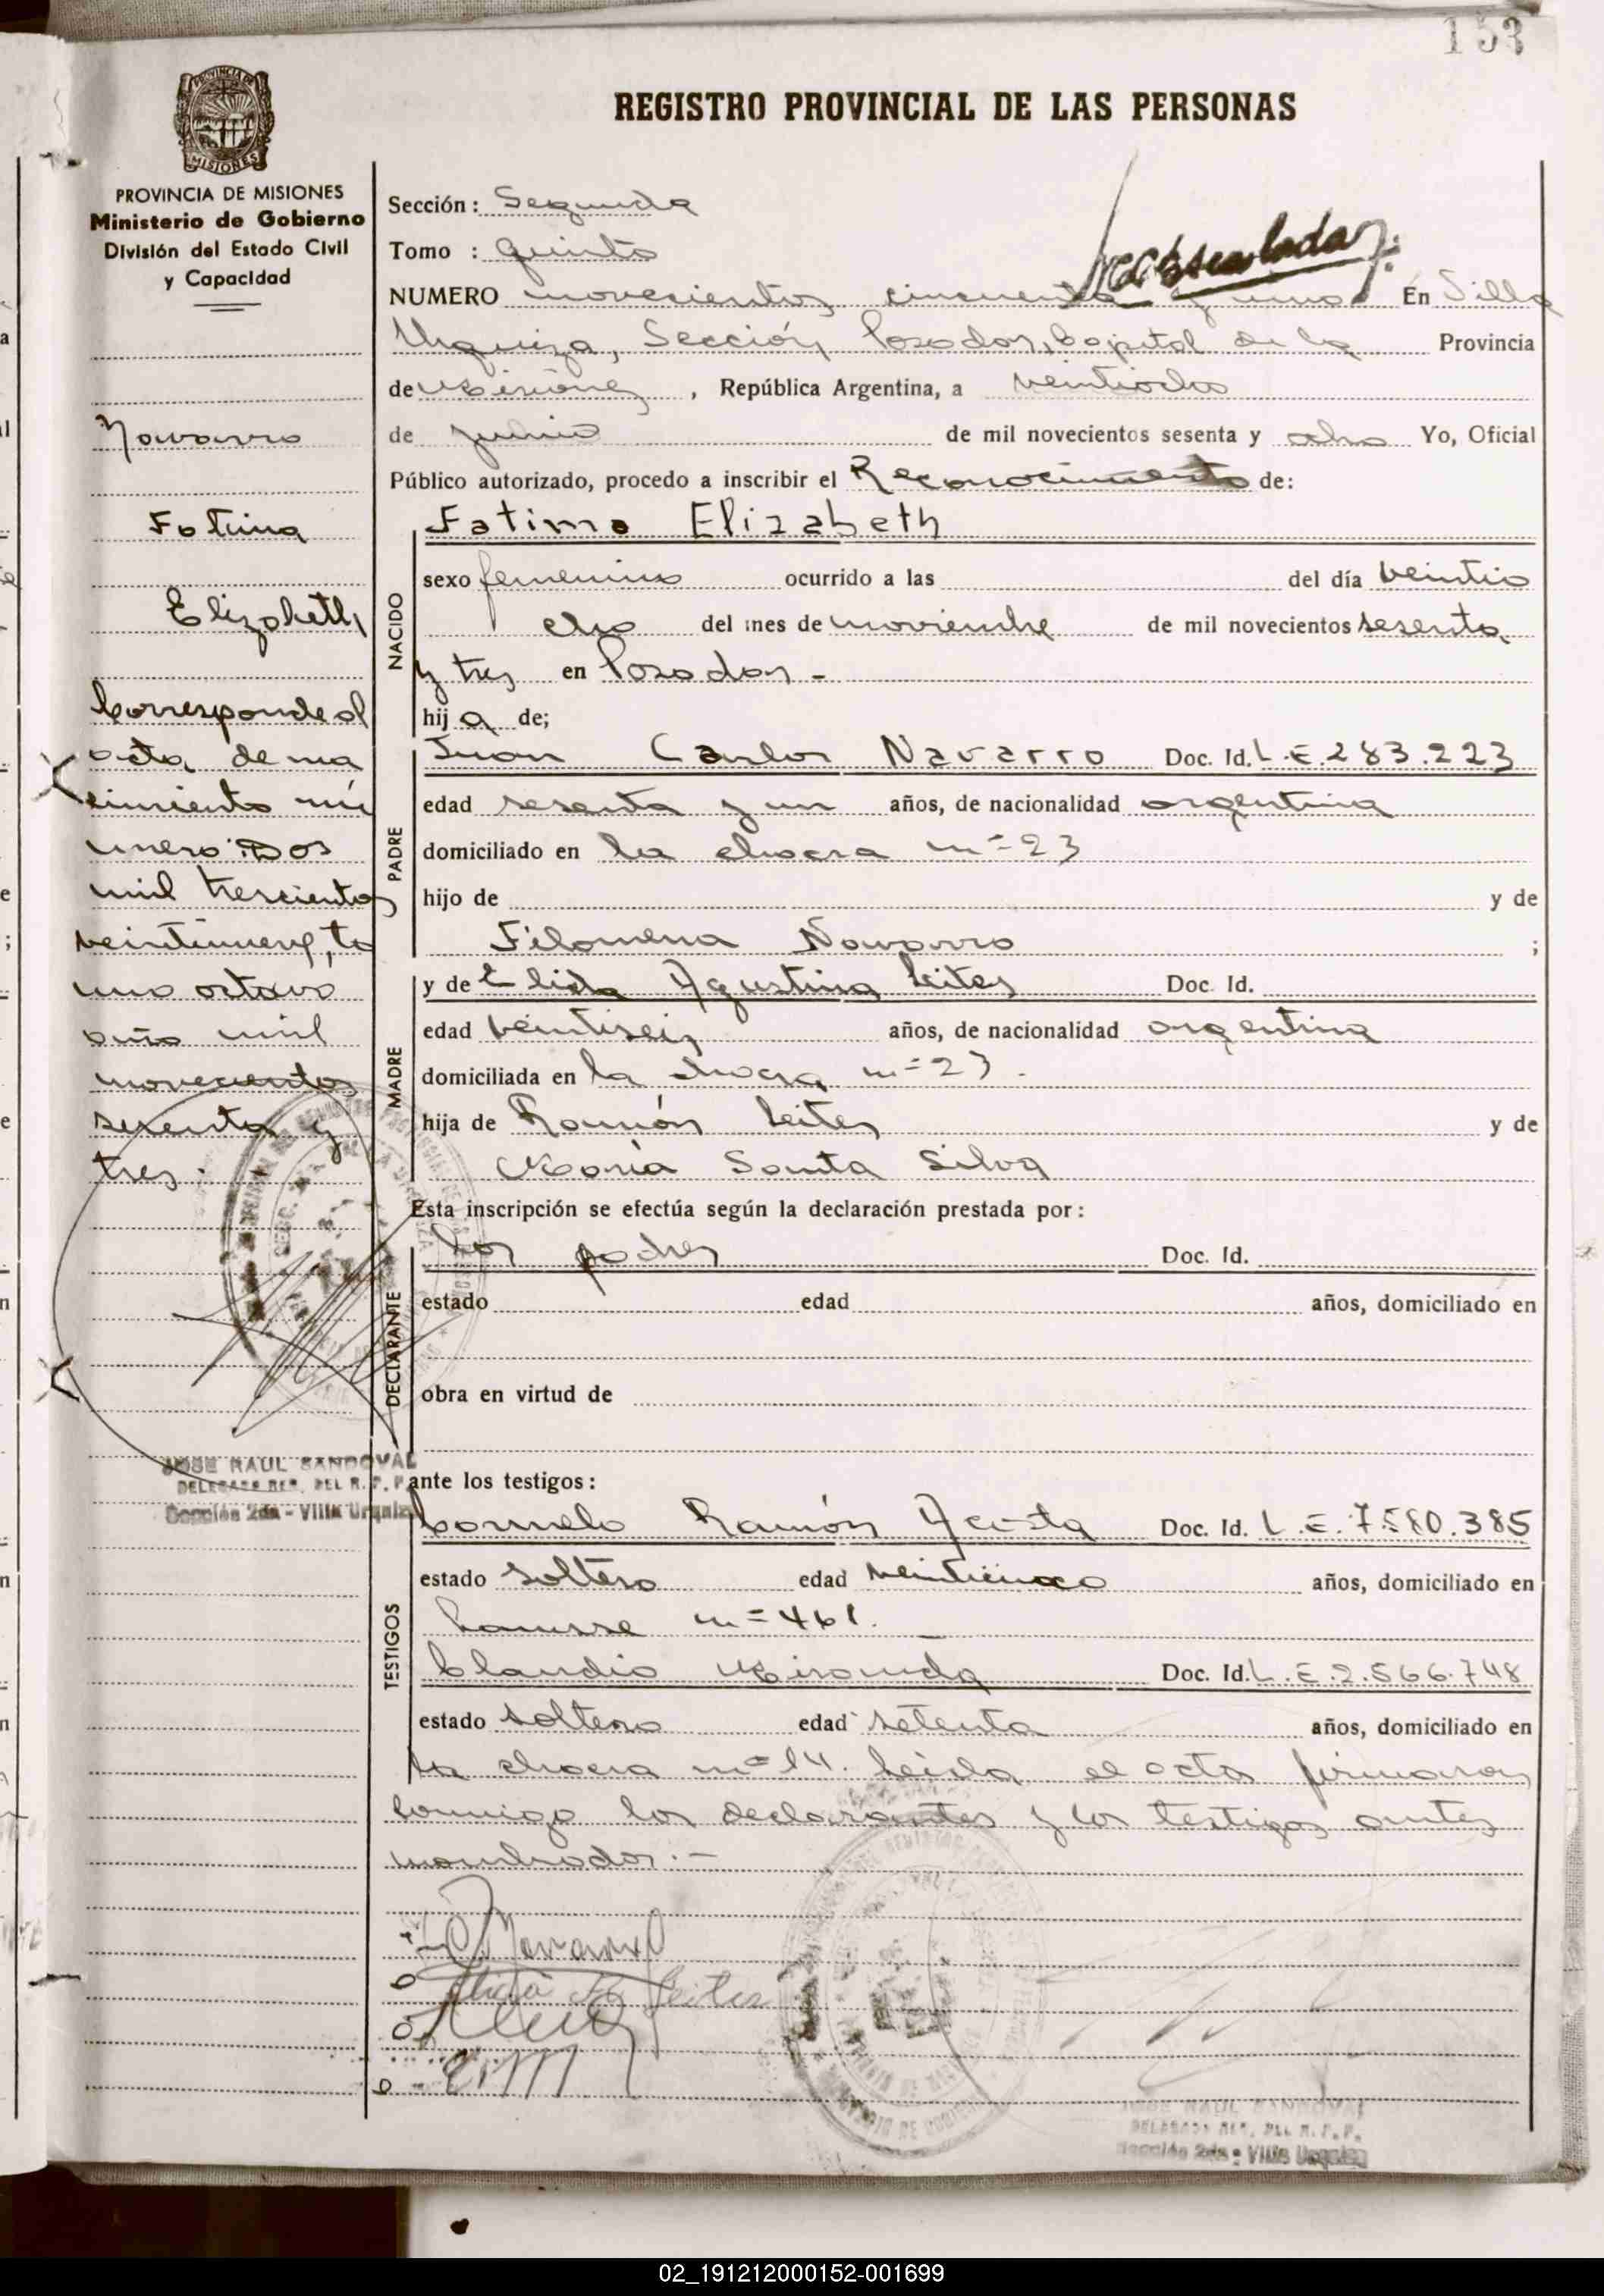 153
PROVINCIA DE
MISIONES
REGISTRO PROVINCIAL DE LAS PERSONAS
PROVINCIA DE MISIONES
Ministerio de Gobierno
División del Estado Civil
y Capacidad
Navarro
Fatima
Elizabeth
Corresponde al
acta de na
cimiento nú
mero: Dos
mil trescientos
veintinueve, to
mo octavo
año mil
novecientos
sesenta y
tres.
JOSE RAUL SANDOVAL
DELEGADO REP. DEL R. P. P.
Sección 2da - Villa Urquiza
Sección: Segunda
Tomo : quinto
NUMERO novecientos cincuenta y uno En Villa
Urquiza, Sección Posadas, Capital de la Provincia
de Misiones, República Argentina, a veintiocho
de junio de mil novecientos sesenta y ocho Yo, Oficial
Público autorizado, procedo a inscribir el Reconocimiento de:
NACIDO
Fatima Elizabeth
sexo femenino ocurrido a las del día veintio
cho del mes de noviembre de mil novecientos sesenta
y tres en Posadas -
hij a de;
PADRE
Juan Carlos Navarro Doc. Id. L.E. 283.223
edad sesenta y un años, de nacionalidad argentina
domiciliado en la chacra nº 23
hijo de y de
Filomena Navarro ;
MADRE
y de Elida Agustina Leites Doc. Id.
edad veintiseis años, de nacionalidad argentina
domiciliada en la chacra nº 23.
hija de Ramón Leites y de
María Santa Silva
Esta inscripción se efectúa según la declaración prestada por:
DECLARANTE
los padres Doc. Id.
estado edad años, domiciliado en
obra en virtud de
ante los testigos:
TESTIGOS
Ramón Acosta Doc. Id. L.E. 7.580.385
estado soltero edad veinticinco años, domiciliado en
Lanusse nº 461.
Claudio Miranda Doc. Id. L.E. 2.566.748
estado soltero edad setenta años, domiciliado en
la chacra nº 14. Leida el acta firmaron
conmigo los declarantes y los testigos antes
nombrados. -
Navarro
Elida A. Leites
JOSE RAUL SANDOVAL
DELEGADO REP. DEL R. P. P.
Sección 2da - Villa Urquiza
02_191212000152-001699